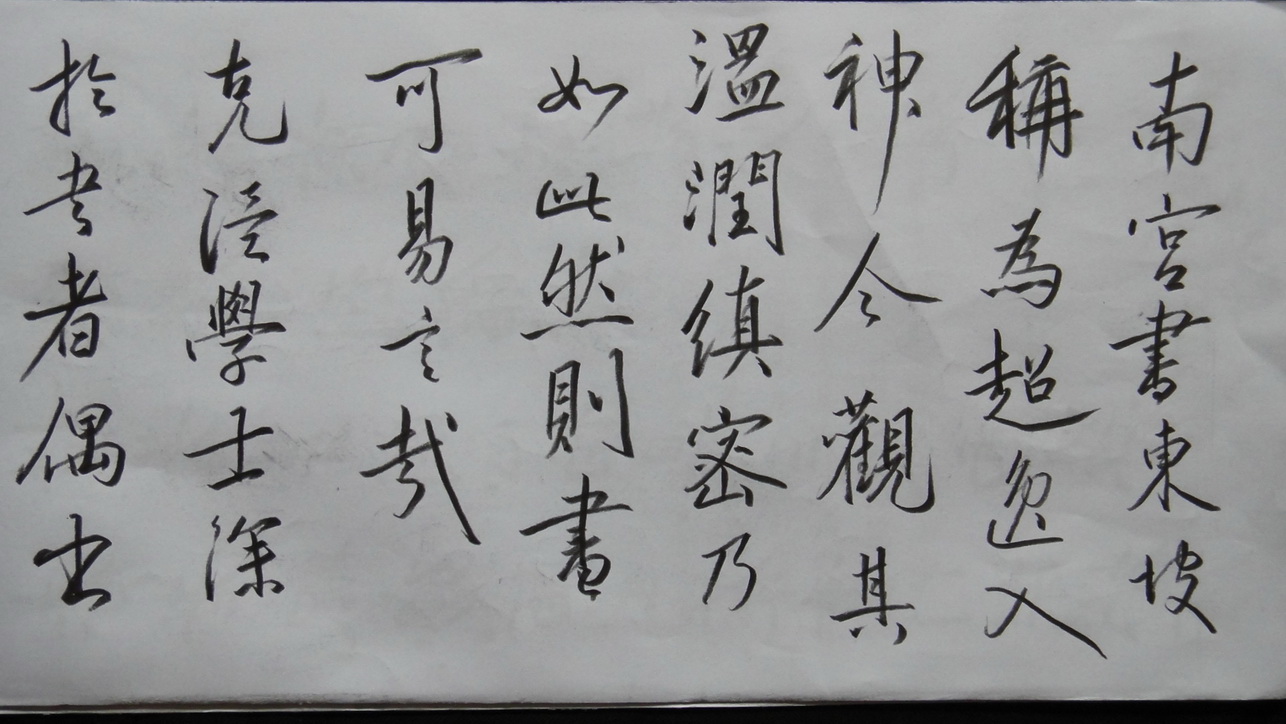 南宮書東坡
稱為超逸入
神今觀其
溫潤縝密乃
如此然則書
可易言哉
克淫學士深
於書者偶出